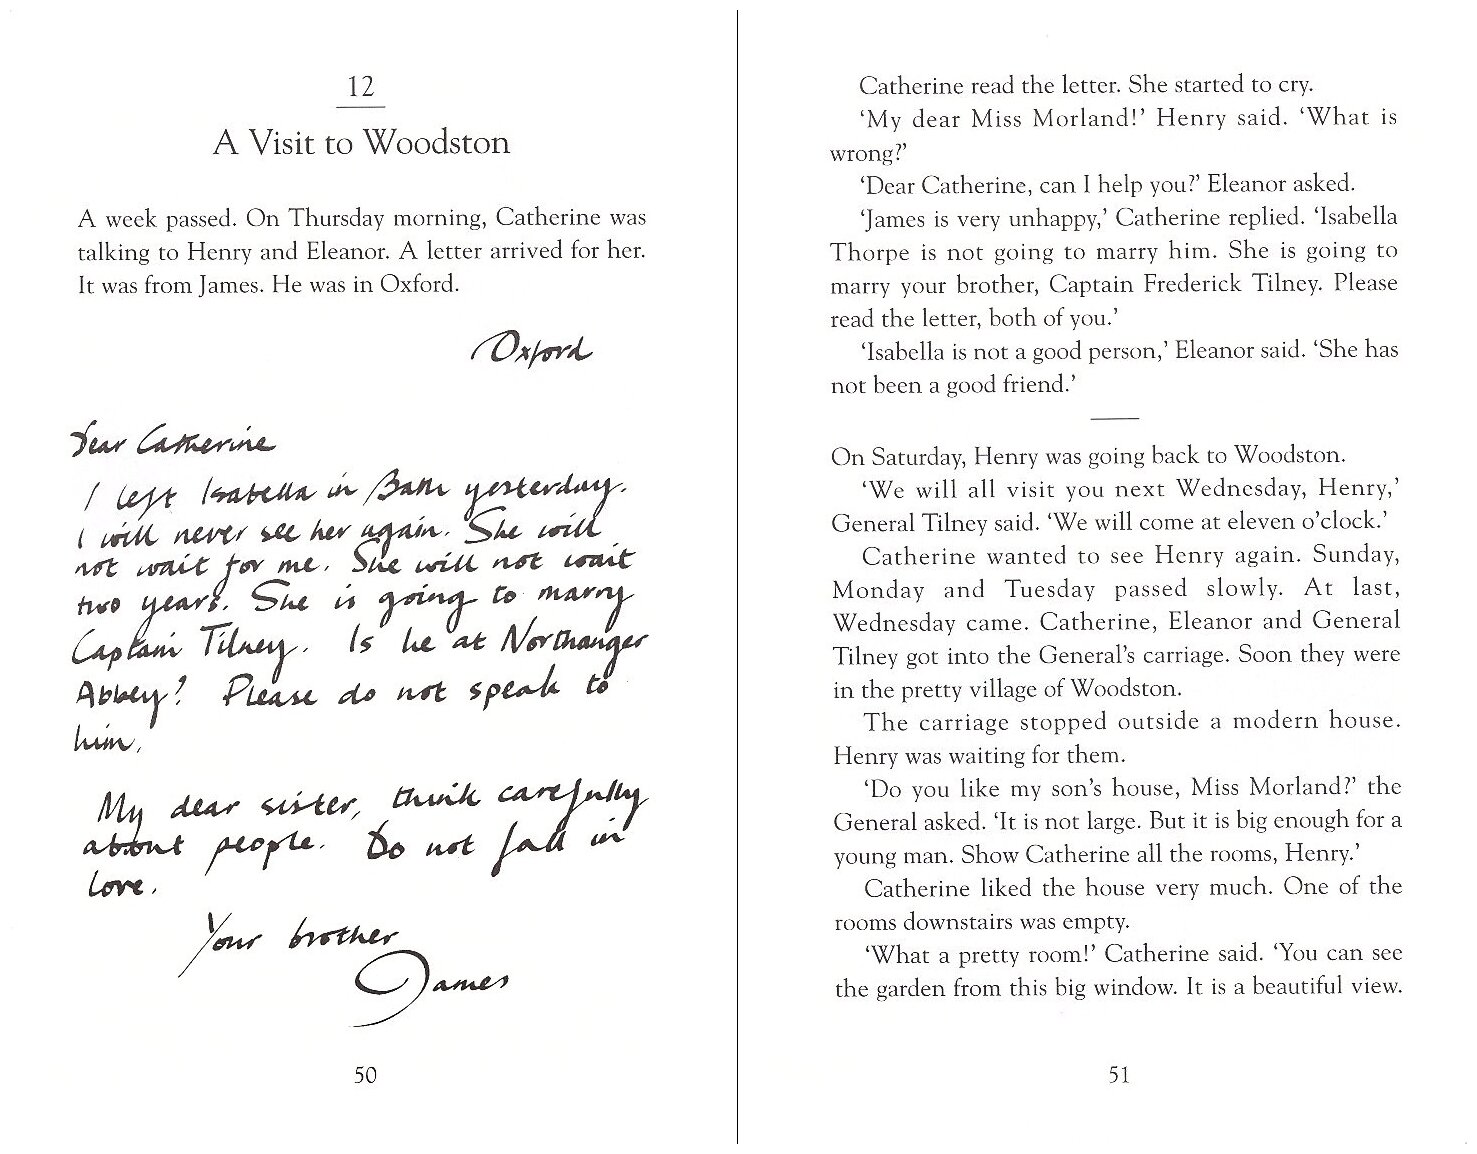 12
A Visit to Woodston
A week passed. On Thursday morning, Catherine was
talking to Henry and Eleanor. A letter arrived for her.
It was from James. He was in Oxford.
Oxford
Dear Catherine
I left Isabella in Bath yesterday.
I will never see her again. She will
not wait for me. She will not wait
two years. She is going to marry
Captain Tilney. Is he at Northanger
Abbey? Please do not speak to
him.
My dear sister, think carefully
about people. Do not fall in
love.
Your brother
James
50
Catherine read the letter. She started to cry.
‘My dear Miss Morland!’ Henry said. ‘What is
wrong?’
‘Dear Catherine, can I help you?’ Eleanor asked.
‘James is very unhappy,’ Catherine replied. ‘Isabella
Thorpe is not going to marry him. She is going to
marry your brother, Captain Frederick Tilney. Please
read the letter, both of you.’
‘Isabella is not a good person,’ Eleanor said. ‘She has
not been a good friend.’
On Saturday, Henry was going back to Woodston.
‘We will all visit you next Wednesday, Henry,’
General Tilney said. ‘We will come at eleven o’clock.’
Catherine wanted to see Henry again. Sunday,
Monday and Tuesday passed slowly. At last,
Wednesday came. Catherine, Eleanor and General
Tilney got into the General’s carriage. Soon they were
in the pretty village of Woodston.
The carriage stopped outside a modern house.
Henry was waiting for them.
‘Do you like my son’s house, Miss Morland?’ the
General asked. ‘It is not large. But it is big enough for a
young man. Show Catherine all the rooms, Henry.’
Catherine liked the house very much. One of the
rooms downstairs was empty.
‘What a pretty room!’ Catherine said. ‘You can see
the garden from this big window. It is a beautiful view.
51